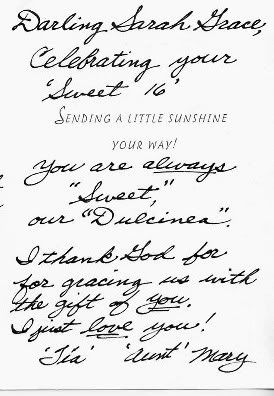 Darling Sarah Grace,
Celebrating your
'Sweet 16'
SENDING A LITTLE SUNSHINE
YOUR WAY!
You are always
"Sweet,"
our "Dulcinea".
I thank God for
for gracing us with
the gift of you.
I just love you!
'Tía' 'aunt' Mary